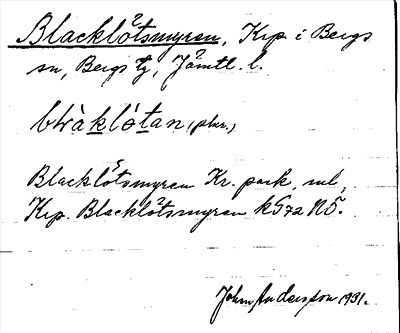 Blacklötsmyren, Krp. i Bergs
sn, Bergs tg, Jämtl. l.
blàklótan (plur.)
Blacklötsmyren Kr. park, mb,
Krp. Blacklötsmyren kG72 NÖ.
John Andersson 1931.